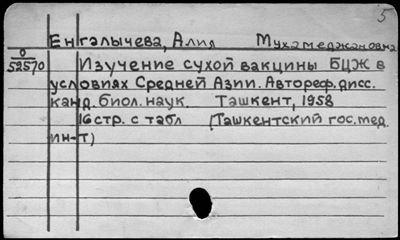 5
Енгалычева, Алия Мухамеджановна
0
52570
Изучение сухой вакцины БЦЖ в
условиях Средней Азии. Автореф.дисс.
канд.биол.наук. Ташкент, 1958
16 стр. с табл (Ташкентский гос.мед.
ин-т)